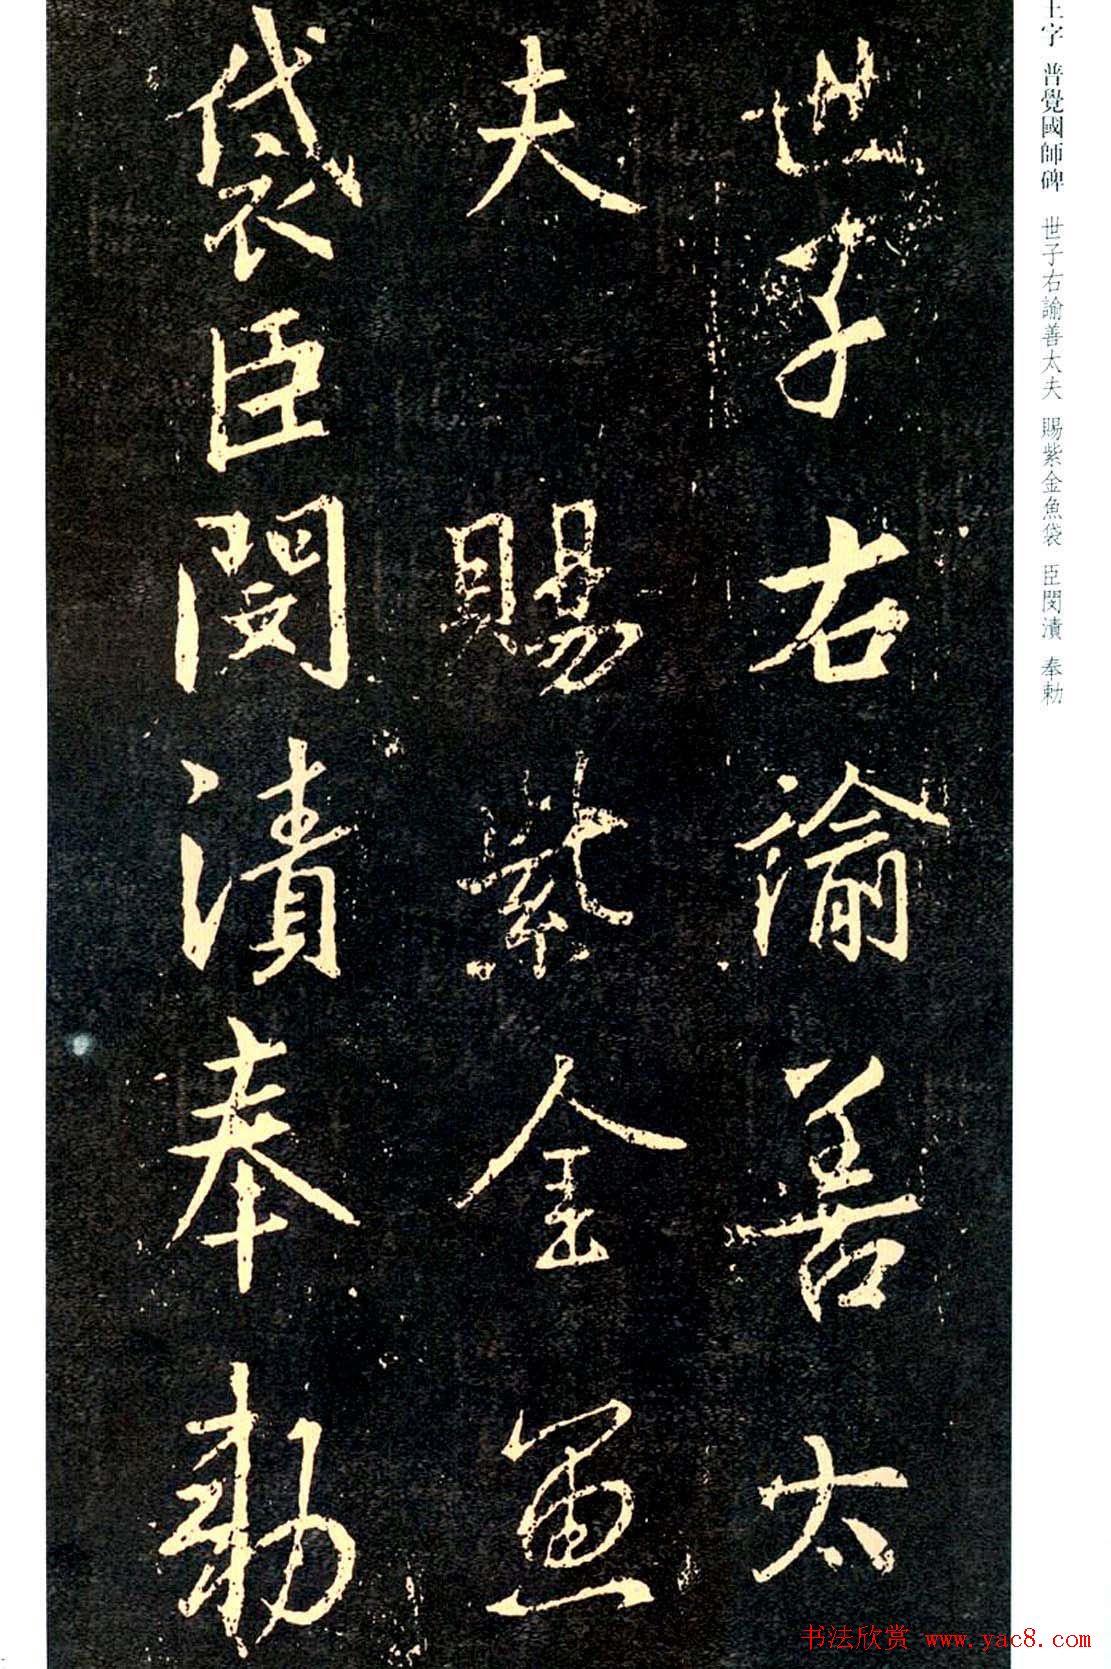 世子右諭善太
夫 賜紫金魚
袋臣閔漬奉勅
王字 普覺國師碑 世子右諭善太夫 賜紫金魚袋 臣閔漬 奉勅
书法欣赏 www.yac8.com